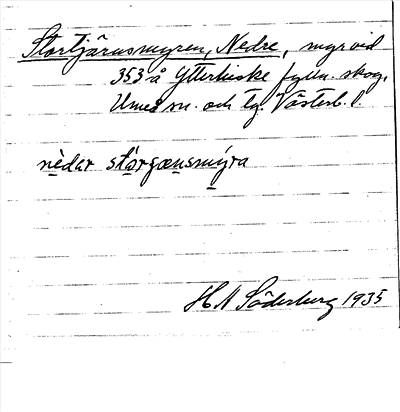 Stortjärnsmyren, Nedre, myr vid
353 å Ytterhiske fylln. skog,
Umeå sn. och tg. Västerb. l.
nèdar stórgænsmýra
H N Söderberg 1935